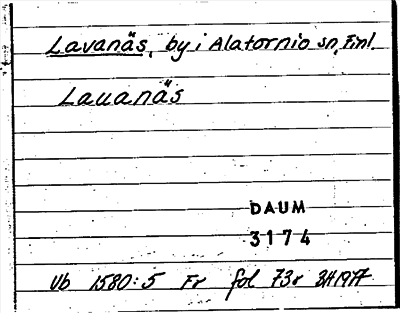 Lavanäs, by i Alatornio sn, Finl.
Lauanäs
DAUM
3174
Vb 1580:5 Fr fol 73r